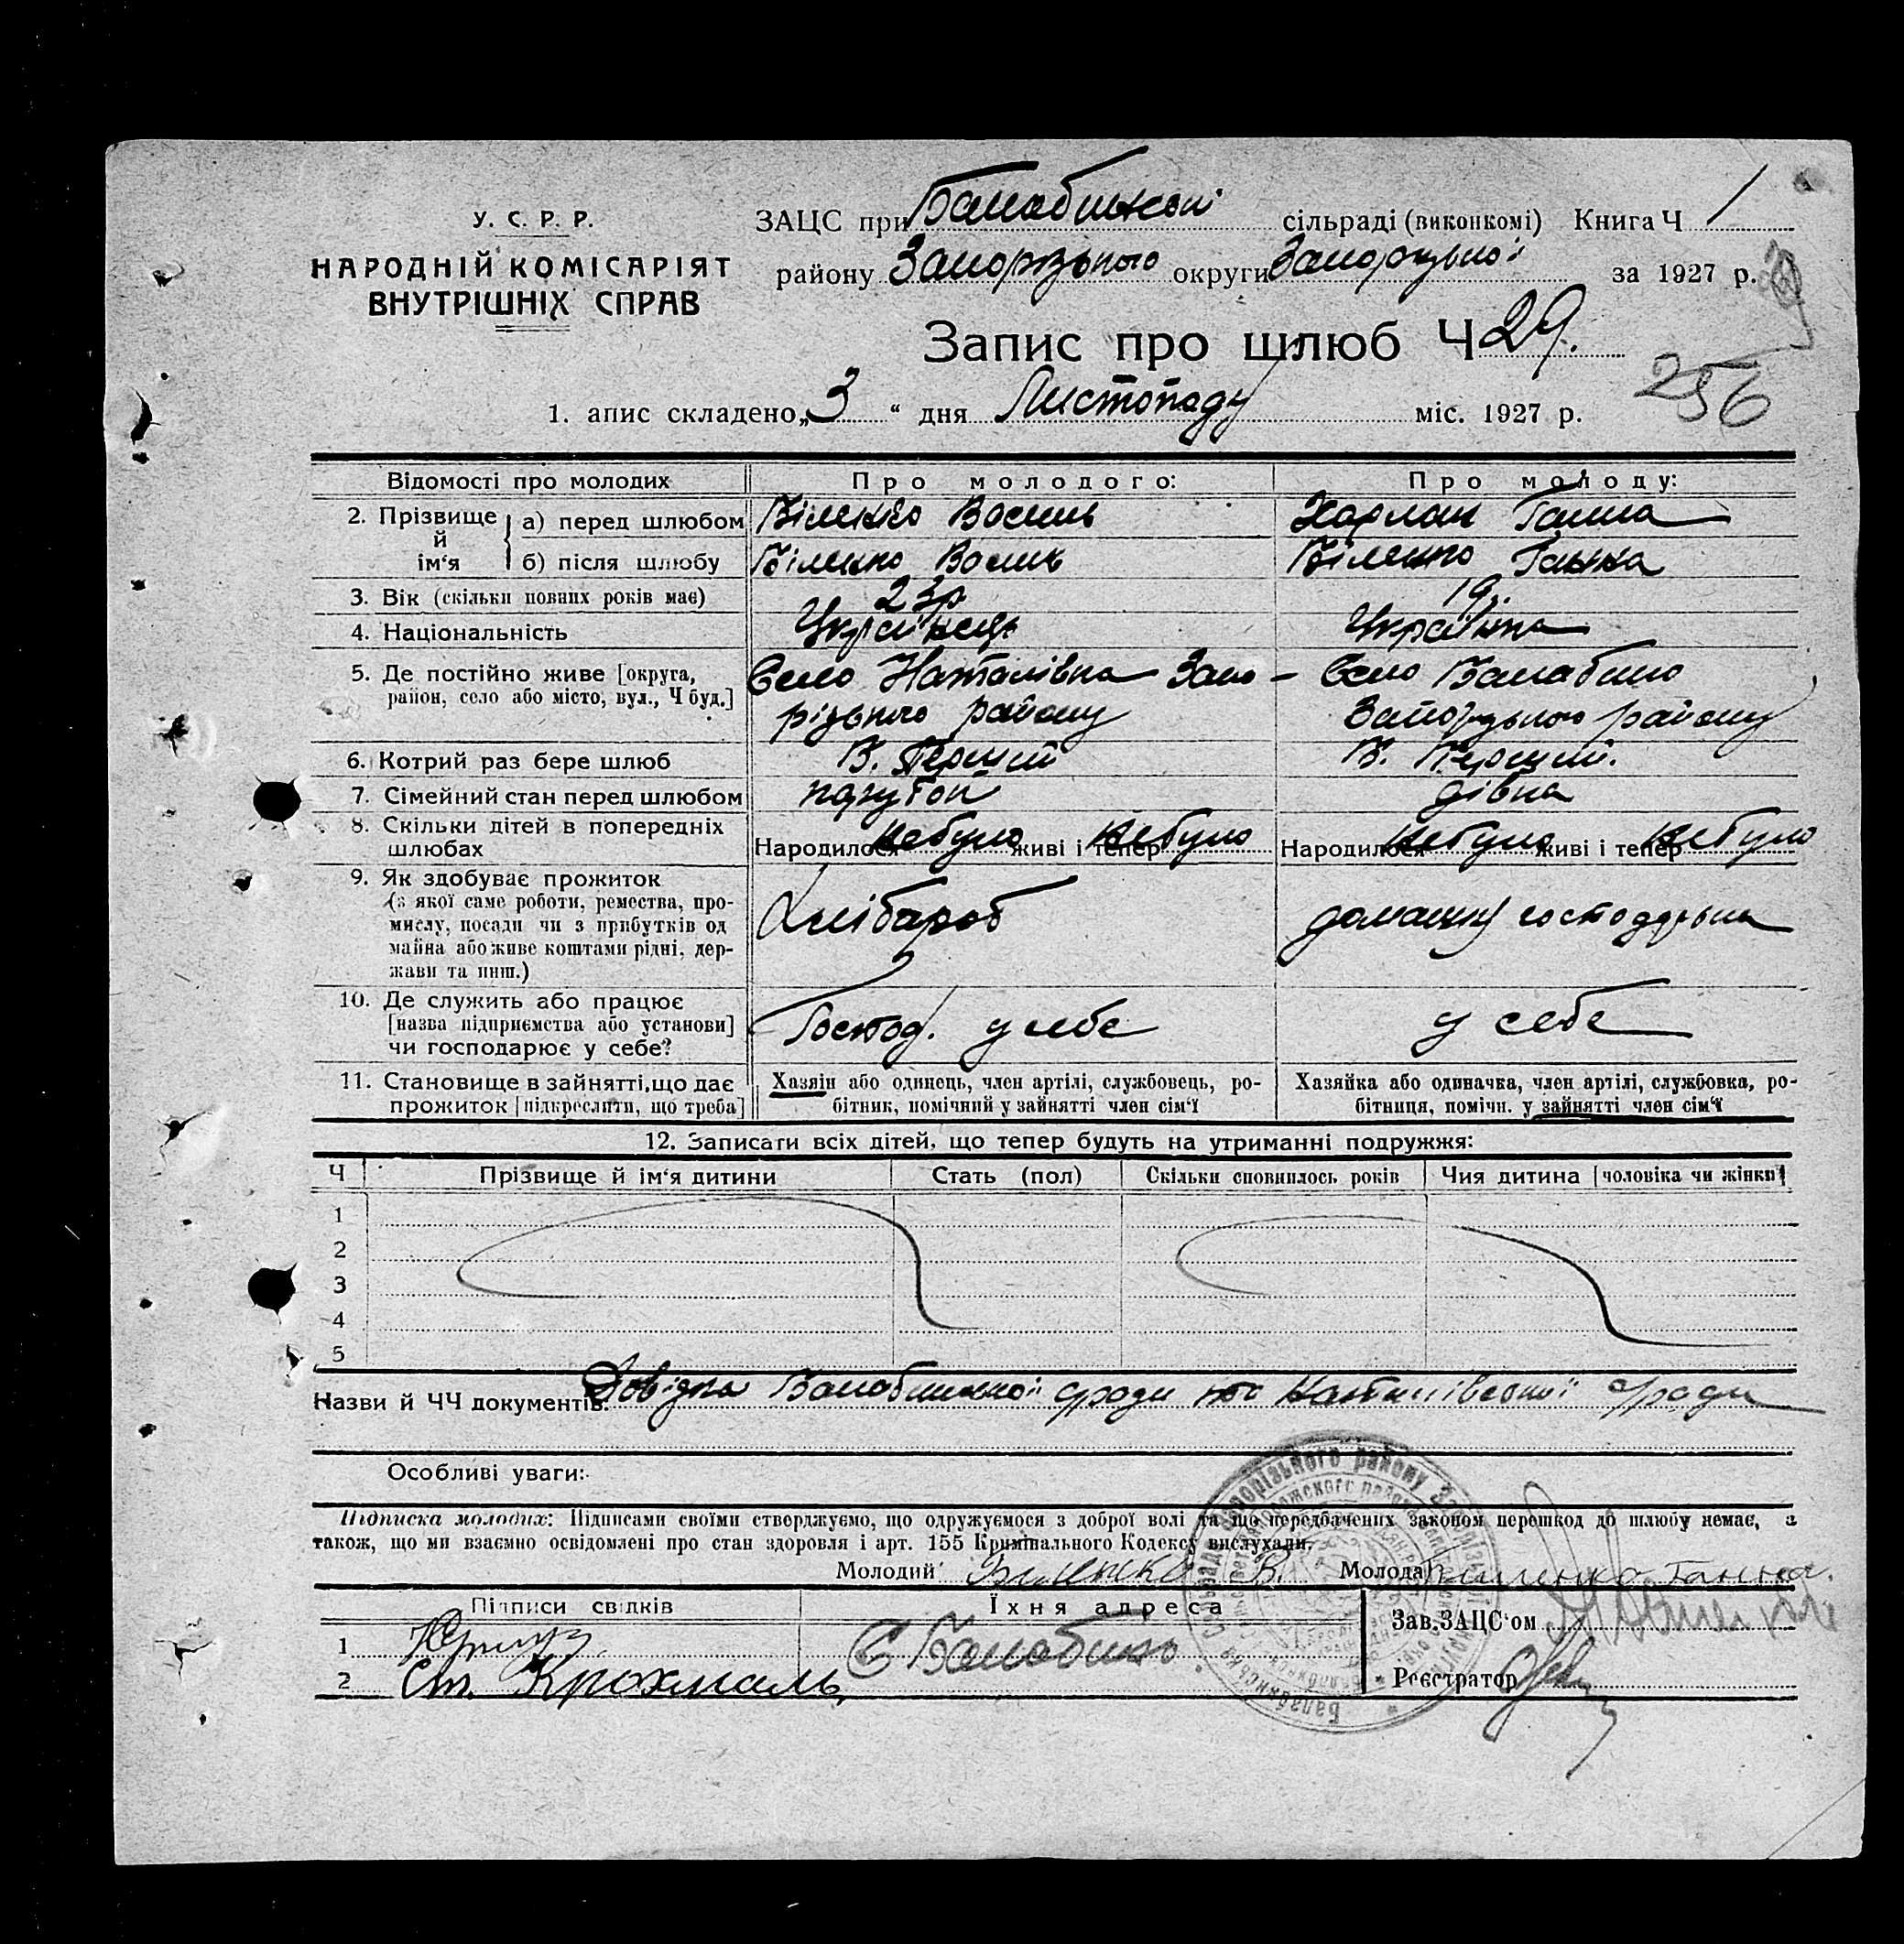 У. С. Р. Р.
НАРОДНІЙ КОМІСАРІЯТ
ВНУТРІШНІХ СПРАВ
ЗАЦС при Балабинській сільраді (виконкомі) Книга Ч 1
району Запорізького округи Запорізької за 1927 р.
Запис про шлюб Ч 29.
256
1. апис складено „3“ дня Листопаду міс. 1927 р.
Відомості про молодих
Про молодого:
Про молоду:
2. Прізвище й ім‘я
а) перед шлюбом
Біленко Василь
Харлан Ганна
б) після шлюбу
Біленко Василь
Біленко Ганна
3. Вік (скільки повних років має)
23р
19.
4. Національність
Українець
Українка
5. Де постійно живе [округа,
район, село або місто, вул., Ч буд.]
Село Наталівка Запо-
різького району
Село Балабино
Запорізького району
6. Котрий раз бере шлюб
В. Перший
В. Перший.
7. Сімейний стан перед шлюбом
парубок
дівка
8. Скільки дітей в попередніх
шлюбах
Народилося небуло живі і тепер небуло
Народилося небуло живі і тепер небуло
9. Як здобуває прожиток
(з якої саме роботи, ремества, про-
мислу, посади чи з прибутків од
майна або живе коштами рідні, дер-
жави та инш.)
Хлібароб
домашня господарька
10. Де служить або працює
[назва підприємства або установи]
чи господарює у себе?
Господ. у себе
у себе
11. Становище в зайнятті, що дає
прожиток [підкреслити, що треба]
Хазяїн або одинець, член артілі, службовець, ро-
бітник, помічний у зайнятті член сім‘ї
Хазяйка або одиначка, член артілі, службовка, ро-
бітниця, помічн. у зайнятті член сім‘ї
12. Записати всіх дітей, що тепер будуть на утриманні подружжя:
Ч
Прізвище й ім‘я дитини
Стать (пол)
Скільки сповнилось років
Чия дитина [чоловіка чи жінки]
1
2
3
4
5
Назви й ЧЧ документів: Довідка Балабинської с/ради та Наталівської с/ради
Особливі уваги:
Підписка молодих: Підписами своїми стверджуємо, що одружуємося з доброї волі та що передбачених законом перешкод до шлюбу немає, а
також, що ми взаємно освідомлені про стан здоровля і арт. 155 Кримінального Кодексу вислухали.
Молодий Биленко В.
Молода Биленко Ганна.
Підписи свідків
Їхня адреса
Зав. ЗАЦС‘ом
1
С Балабино
2 Ст. Крохмаль
Реєстратор